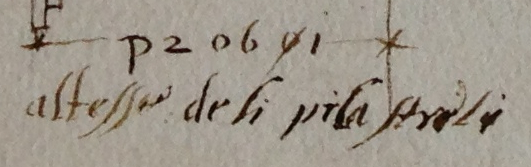 p 2 o 6 ỿ i
altesse de li pilastreli